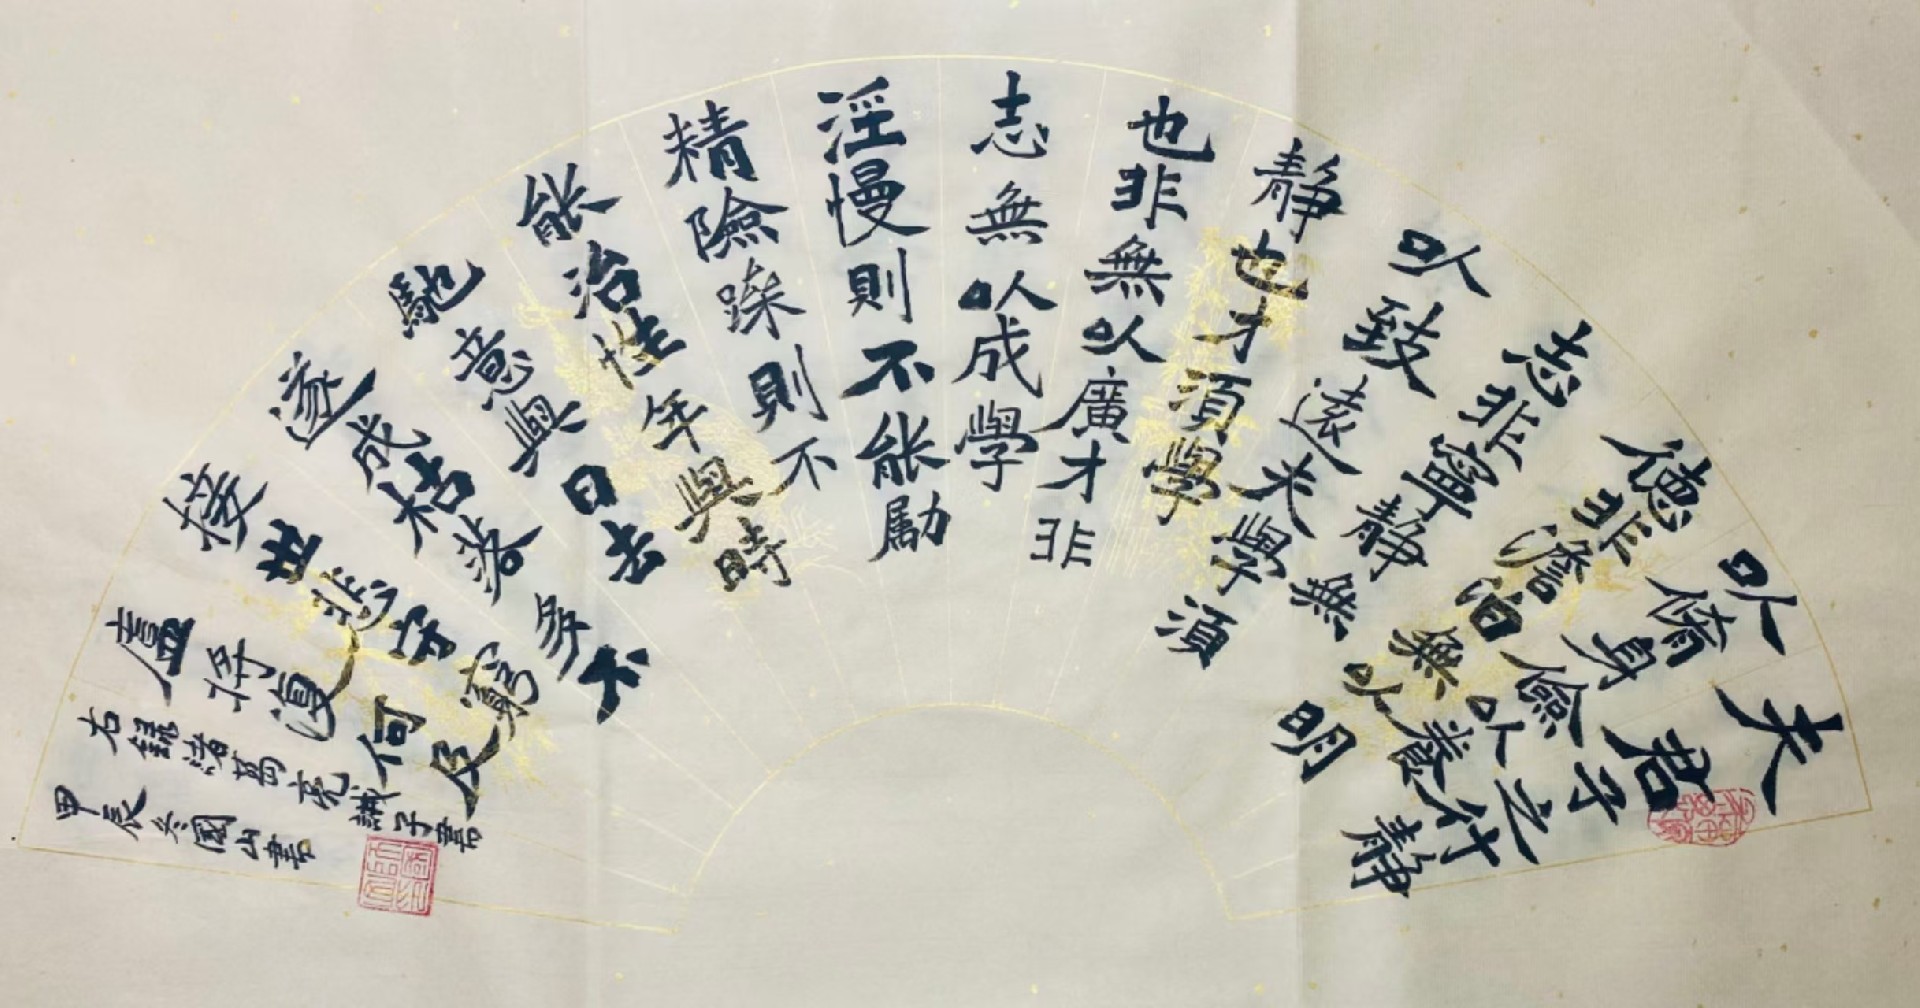 夫君子之行静
以脩身儉以養
德非澹泊無以明
志非寧静無
以致遠夫學須
静也才須學
也非無以廣才非
志無以成學
淫慢則不能勵
精險躁則不
能治性年與時
馳意與日去
遂成枯落多不
接世悲守窮
廬将復何及
右録諸葛亮誡子書
甲辰冬國山書